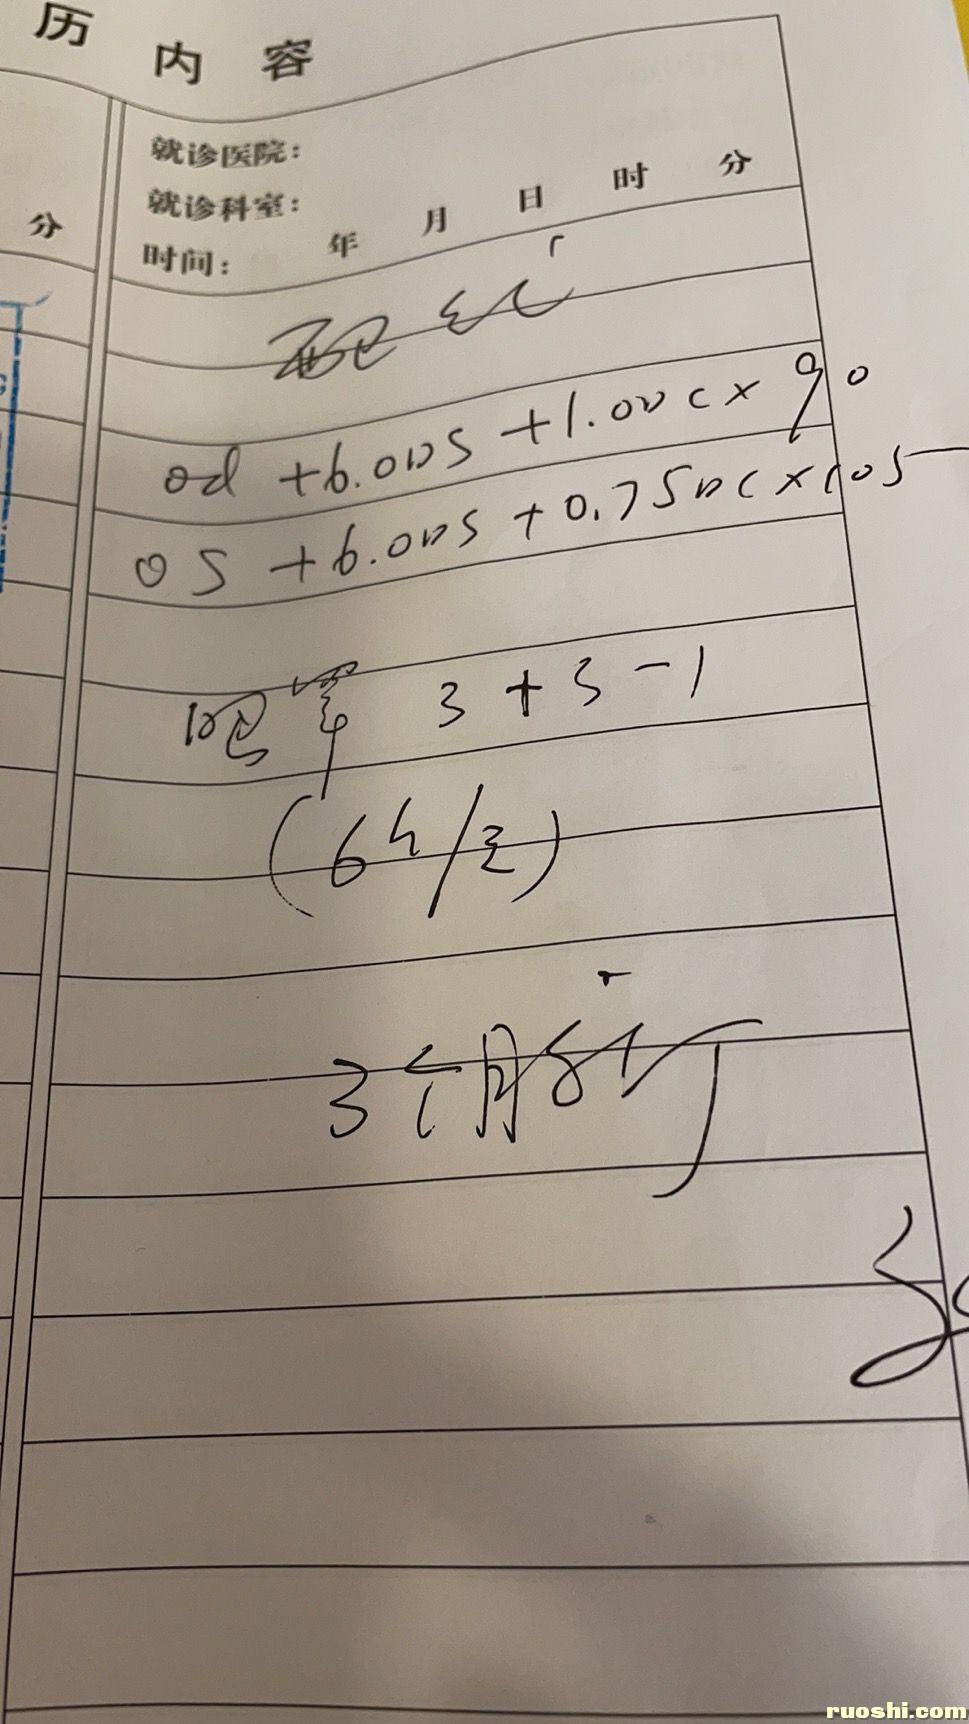 历 内 容
就诊医院:
就诊科室:
时间: 年 月 日 时 分
分
配镜
od +6.00DS +1.00DC×90
OS +6.00DS +0.75DC×105
眼罩 3+3-1
(6h/天)
3个月后
ruoshi.com